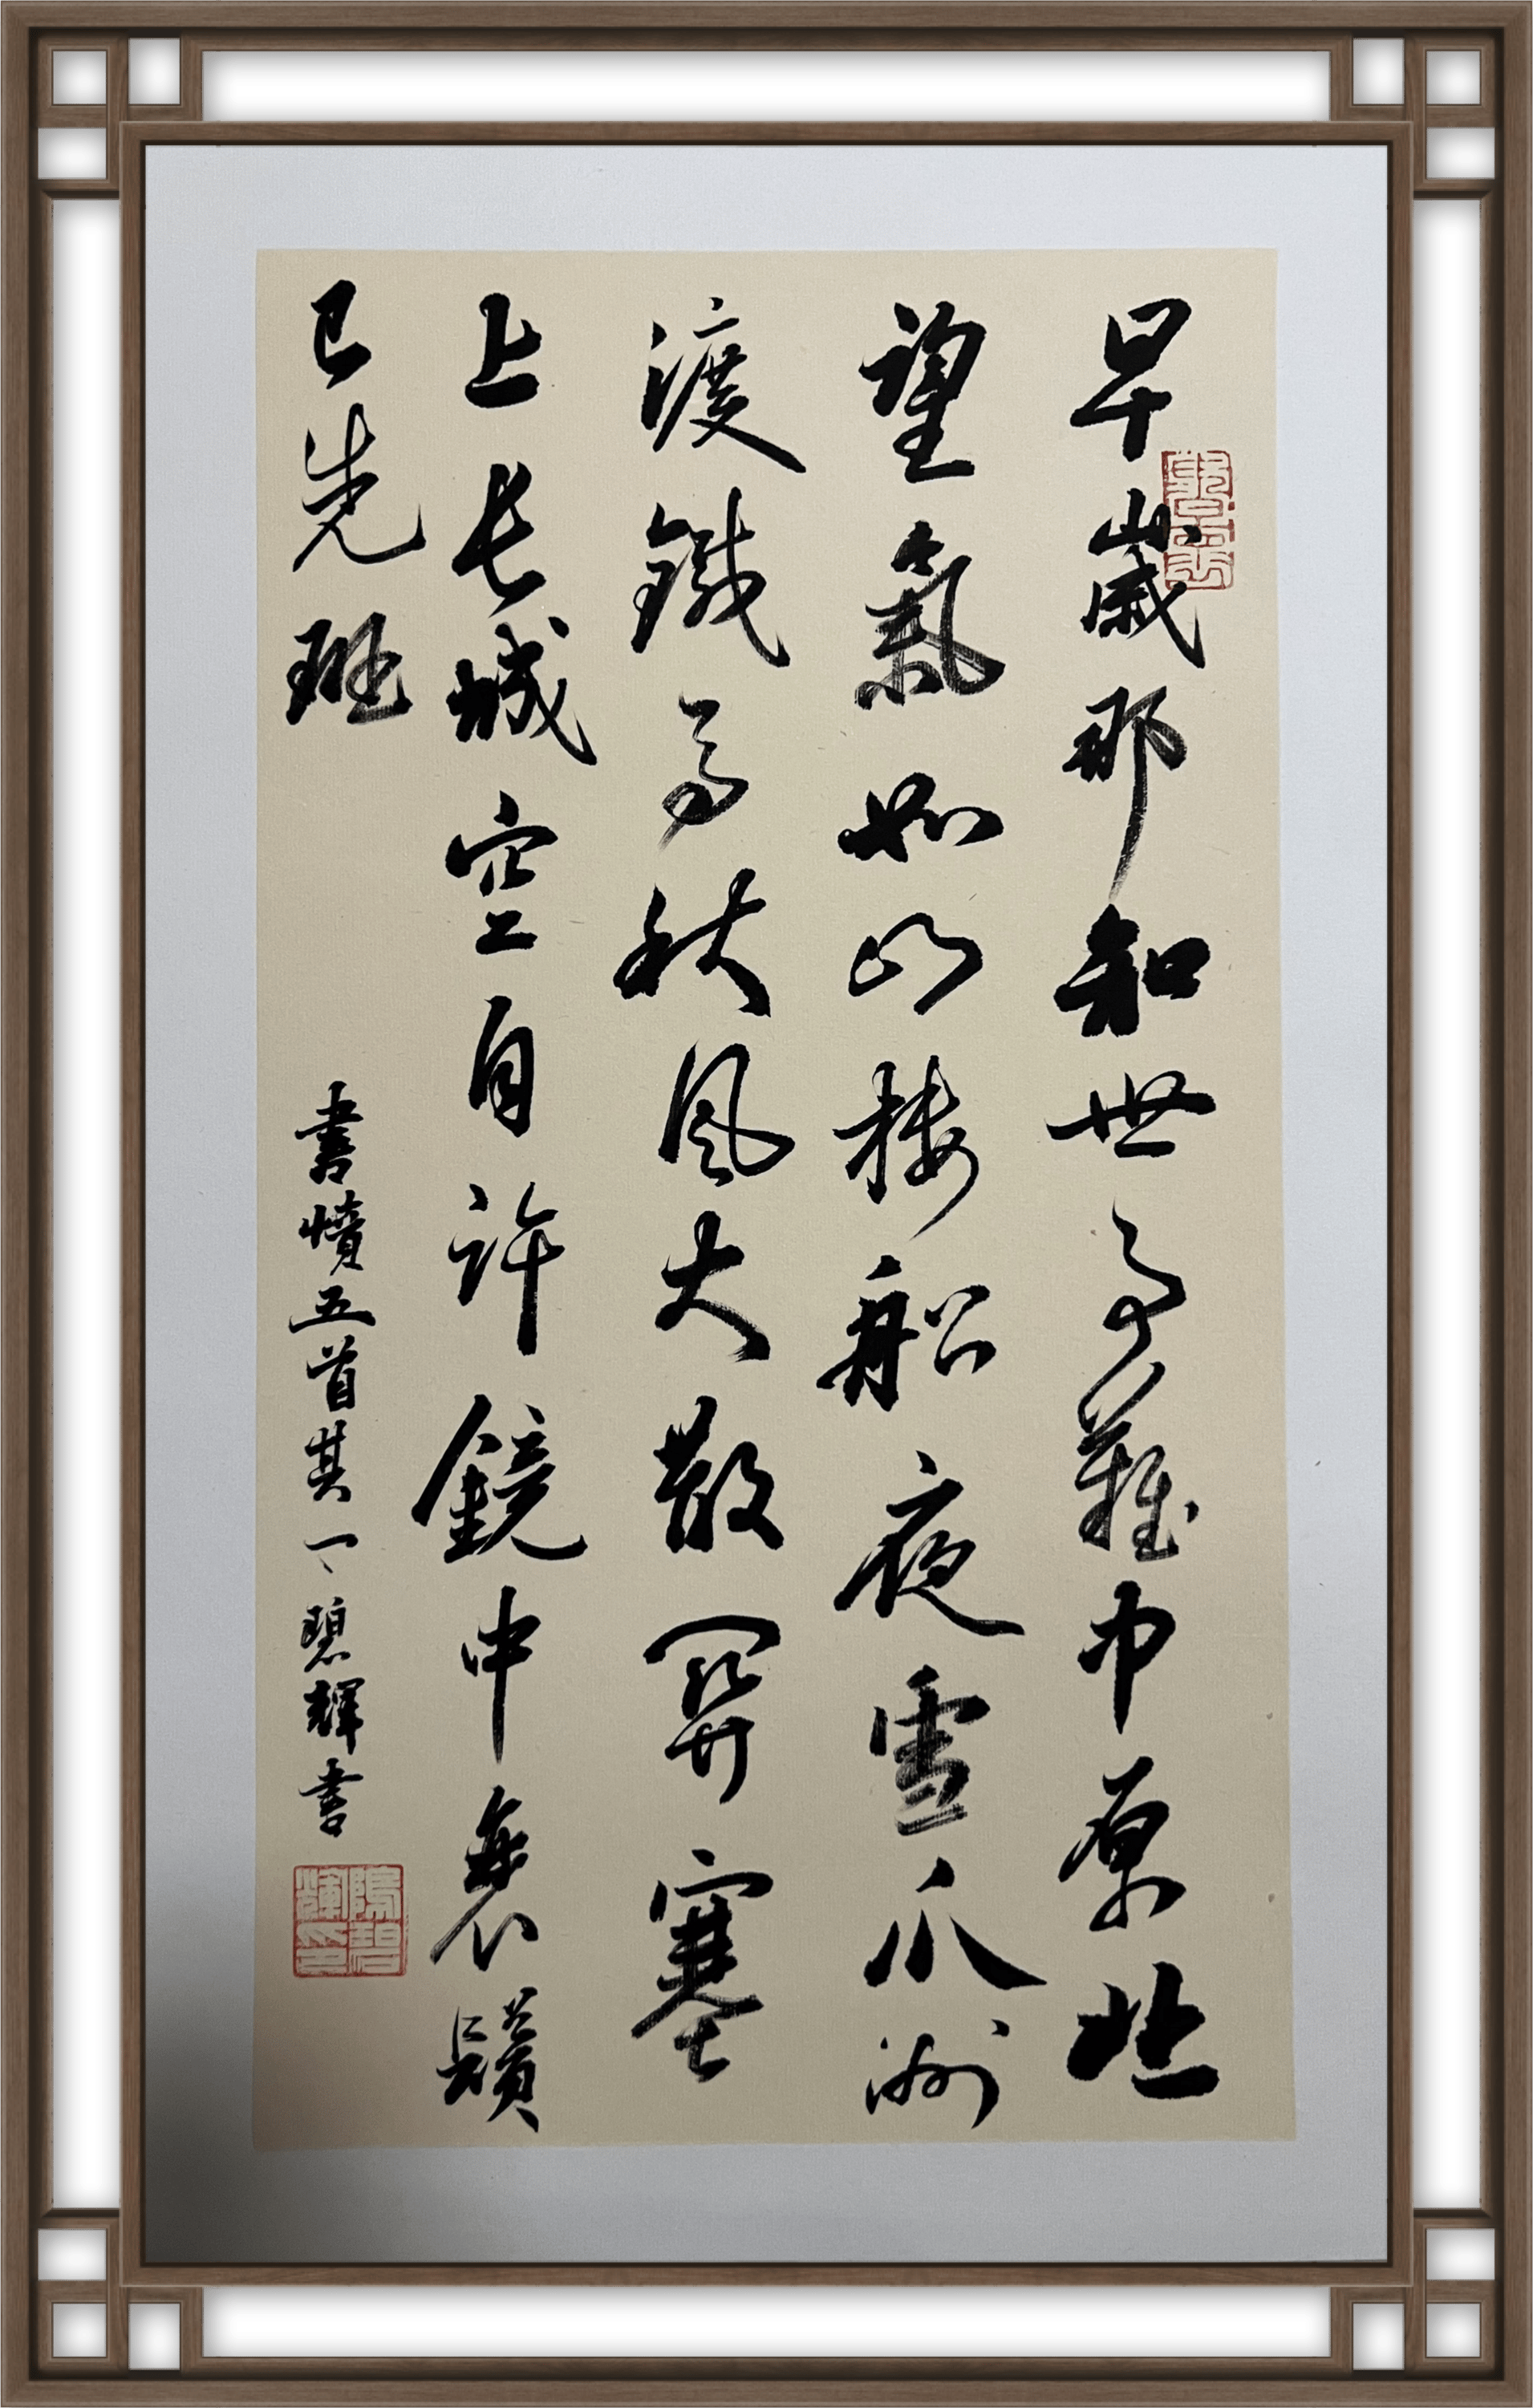 早歲那知世事難中原北
望氣如山樓船夜雪瓜洲
渡鐵馬秋風大散關塞
上长城空自許鏡中衰鬢
已先斑
書憤五首其一碧輝書
陽碧輝印